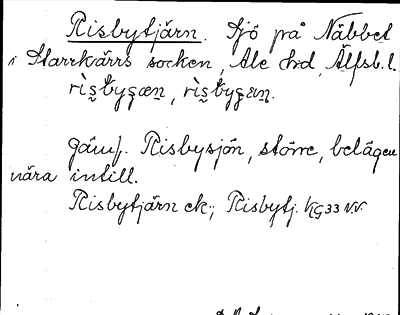 Risbytjärn. Sjö på Näbbet
i Starrkärrs socken, Ale hd, Älfsb. l.
Jämf. Risbysjön, större, belägen
nära intill.
Risbytjärn ek.; Risbytj. KG33 N.V.